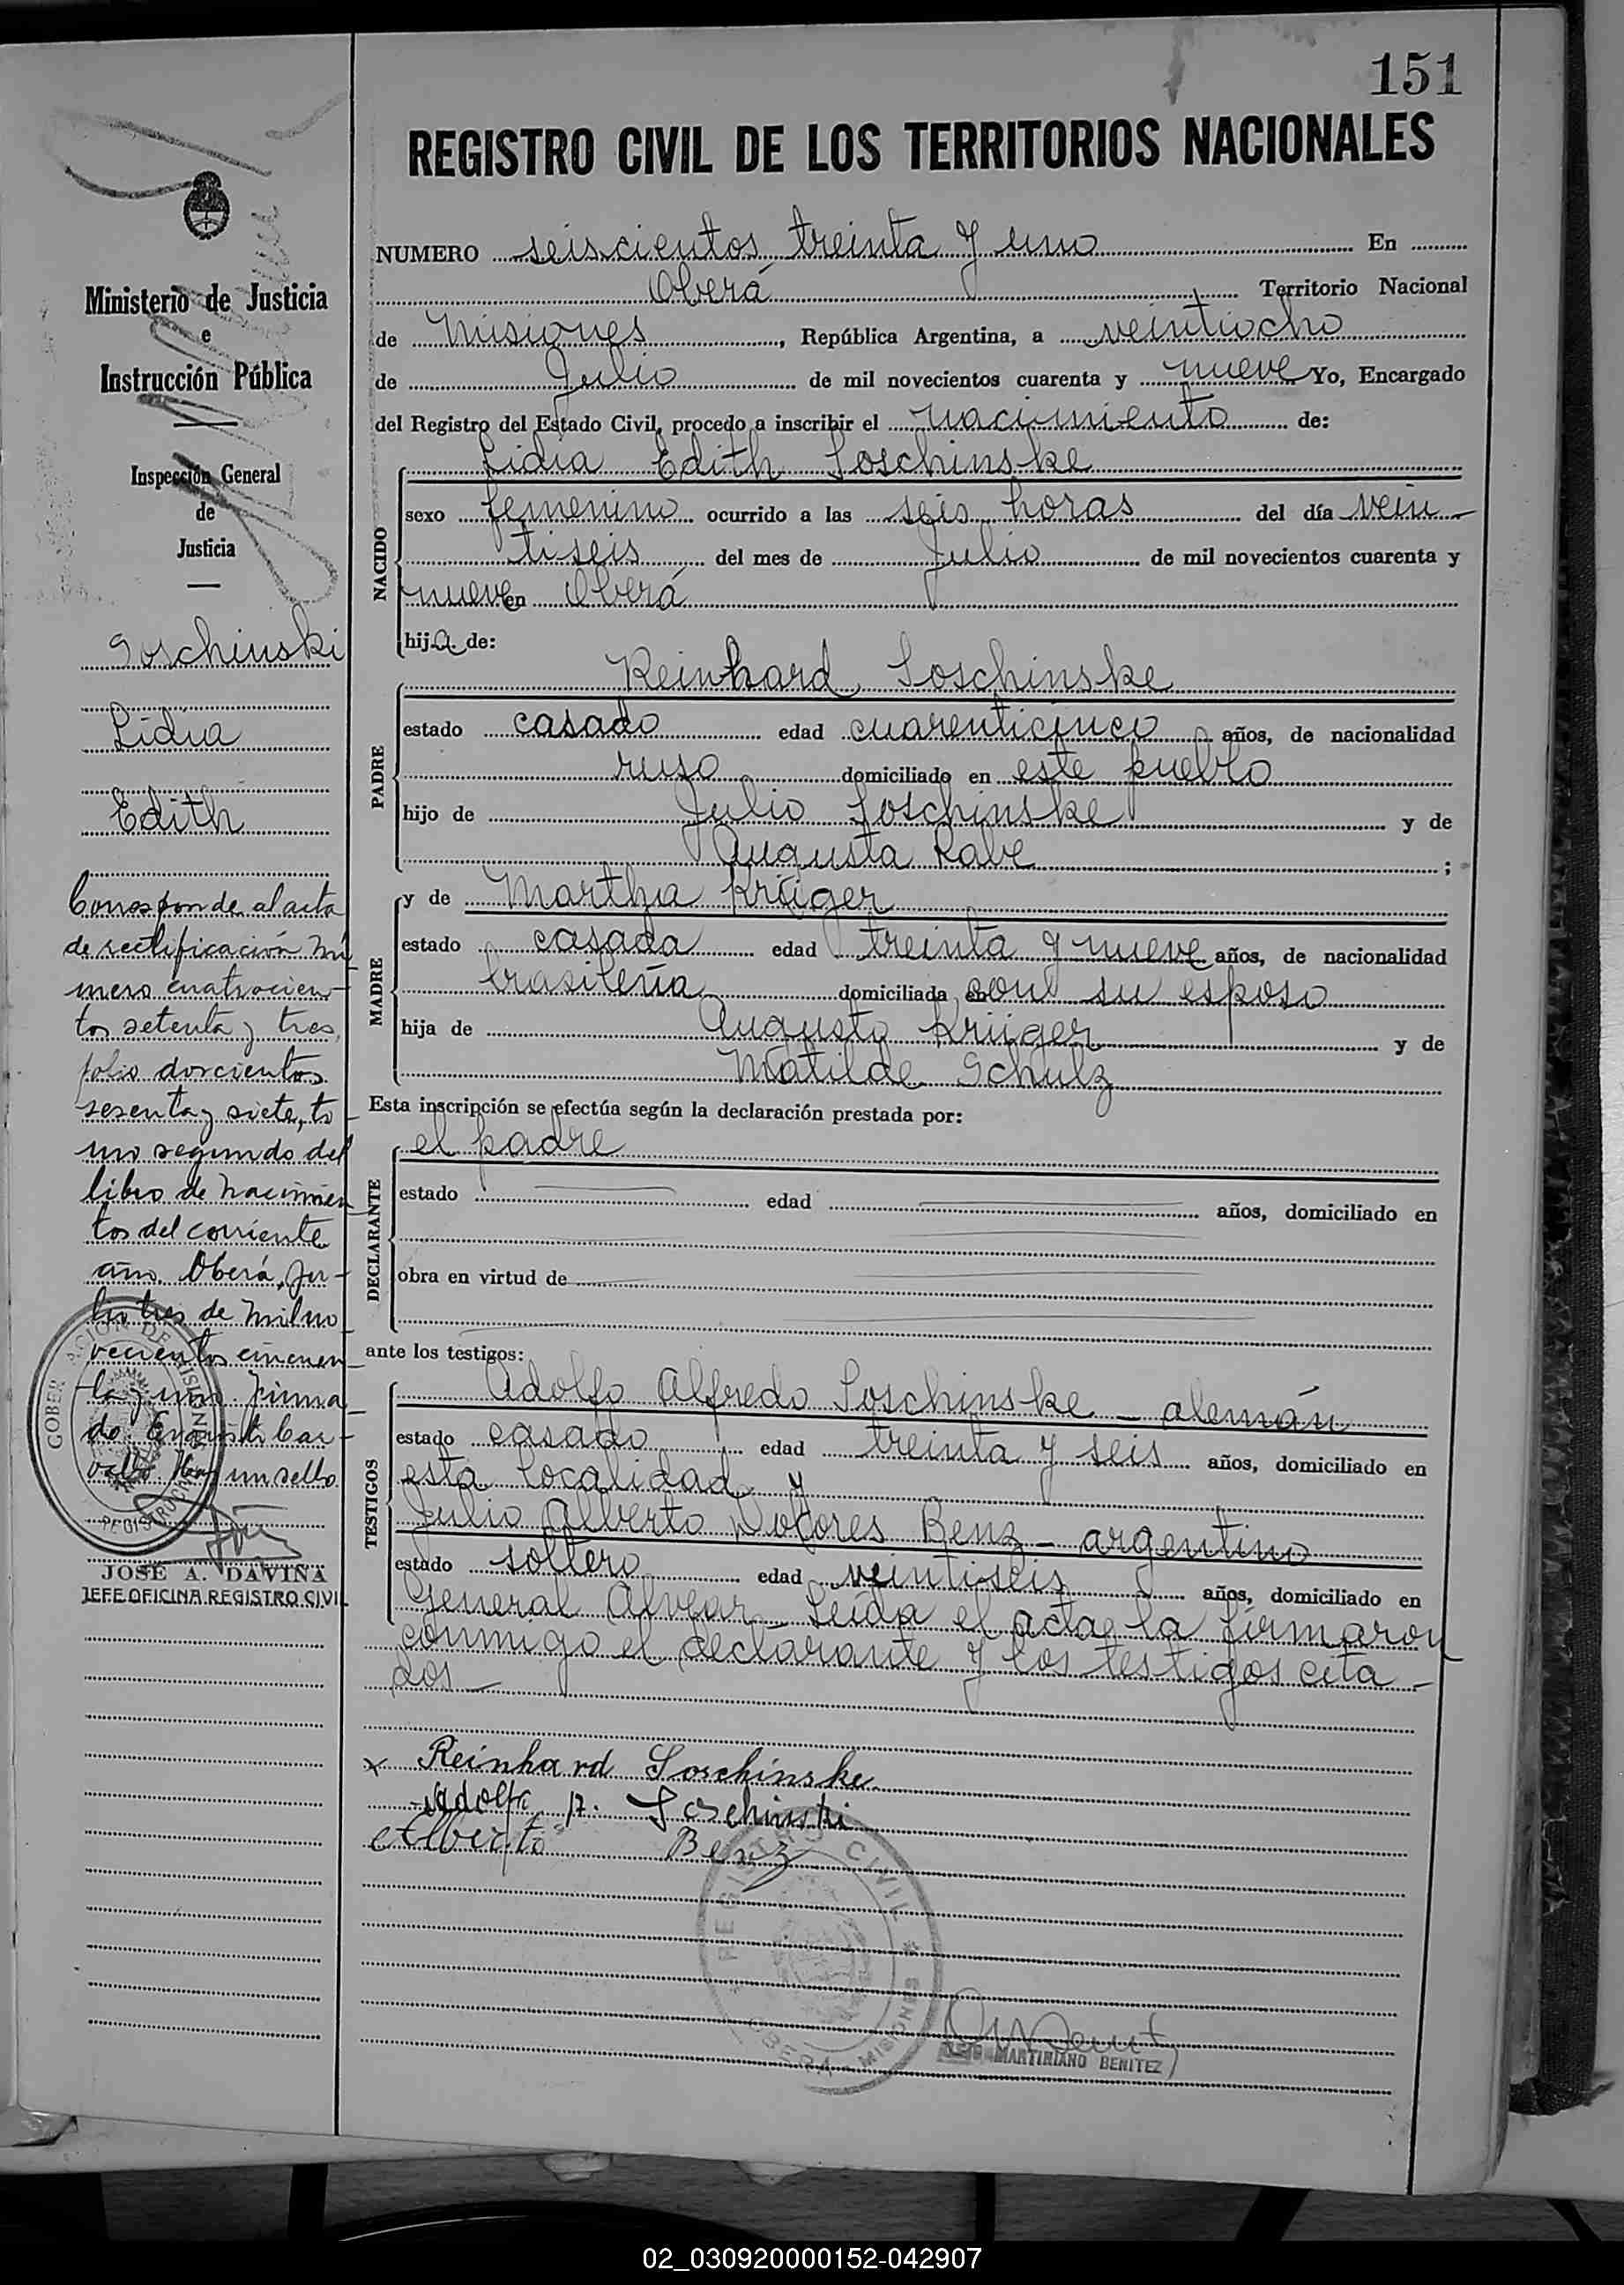 151
REGISTRO CIVIL DE LOS TERRITORIOS NACIONALES
NUMERO seiscientos treinta y uno En
Oberá Territorio Nacional
de Misiones, República Argentina, a veintiocho
de Julio de mil novecientos cuarenta y nueve Yo, Encargado
del Registro del Estado Civil, procedo a inscribir el nacimiento de:
Lidia Edith Soschinske
NACIDO
sexo femenino ocurrido a las seis horas del día vein-
tiseis del mes de Julio de mil novecientos cuarenta y
nueve en Oberá
hija de:
Reinhard Soschinske
PADRE
estado casado edad cuarenticinco años, de nacionalidad
ruso domiciliado en este pueblo
hijo de Julio Soschinske y de
Augusta Rabe ;
y de Martha Krüger
MADRE
estado casada edad treinta y nueve años, de nacionalidad
brasileña domiciliada en con su esposo
hija de Augusto Krüger y de
Matilde Schulz
Esta inscripción se efectúa según la declaración prestada por:
el padre
DECLARANTE
estado edad años, domiciliado en
obra en virtud de
ante los testigos:
Adolfo Alfredo Soschinske - alemán
TESTIGOS
estado casado edad treinta y seis años, domiciliado en
esta localidad y
Julio Alberto Dolores Benz - argentino
estado soltero edad veintiseis años, domiciliado en
General Alvear Leída el acta la firmaron
conmigo el declarante y los testigos cita-
dos -
x Reinhard Soschinske
Adolfo A. Soschinski
Alberto Benz
REGISTRO CIVIL
OBERA - MISIONES
MARTINIANO BENITEZ
Ministerio de Justicia
e
Instrucción Pública
Inspección General
de
Justicia
Soschinski
Lidia
Edith
Corresponde al acta
de rectificación nú
mero cuatrocien-
tos setenta y tres
folio doscientos
sesenta y siete, to
mo segundo del
libro de nacimien
tos del corriente
año. Oberá, Ju-
lio tres de mil no
vecientos cincuen-
ta y uno. Firma
do: Evaristo Car-
vallo. Hay un sello
GOBERNACION DE MISIONES
REGISTRO CIVIL
JOSE A. DAVIÑA
JEFE OFICINA REGISTRO CIVIL
02_030920000152-042907